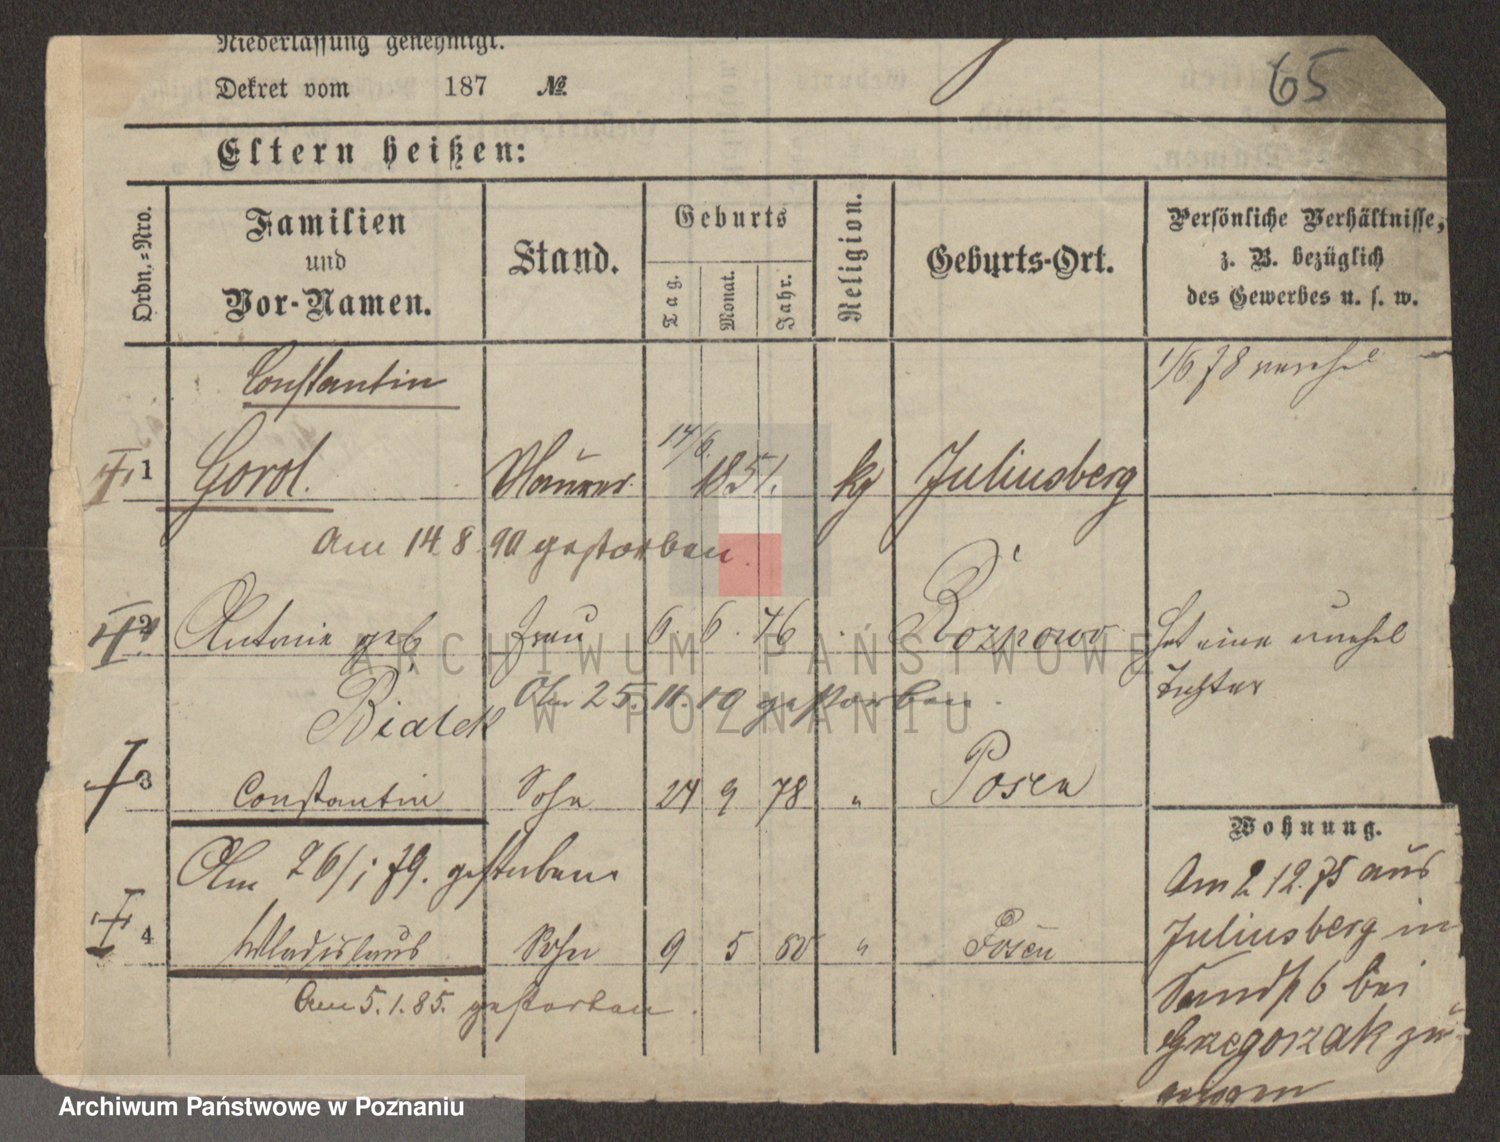 Niederlassung genehmigt.
Dekret vom 187 №
65
Eltern heißen:
Ordn.=Nro.
Familien
und
Vor-Namen.
Stand.
Geburts
Tag.
Monat.
Jahr.
Religion.
Geburts-Ort.
Persönliche Verhältnisse,
z. B. bezüglich
des Gewerbes u. s. w.
Constantin
1/6 78
1 Gorol. Maurer 14/6. 1851. kg Juliusberg
Am 14. 8. 90 gestorben.
2 Antonie geb Frau 6. 6. 46 Hat eine unehel
Tochter
Bialek Am 25. 11. 19 gestorben.
3 Constantin Sohn 24 9 78 " Posen
Am 26/1 79. gestorben.
4 Wladislaus Sohn 9 5 80 " Posen
Am 5. 1. 85. gestorben.
Wohnung.
Am 2 12. 75 aus
Juliusberg in
Sandst 6 bei
Gregorzak zu-
gezogen
ARCHIWUM PAŃSTWOWE
W POZNANIU
Archiwum Państwowe w Poznaniu